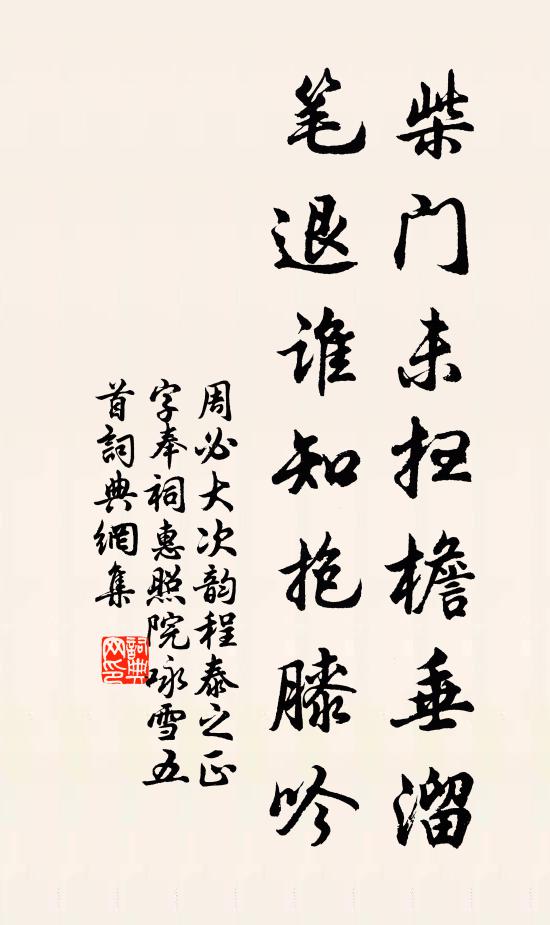 柴门未扫檐垂溜
笔退谁知抱膝吟
周必大次韵程泰之正
字奉祠惠照院咏雪五
首詞典網集
詞典网印